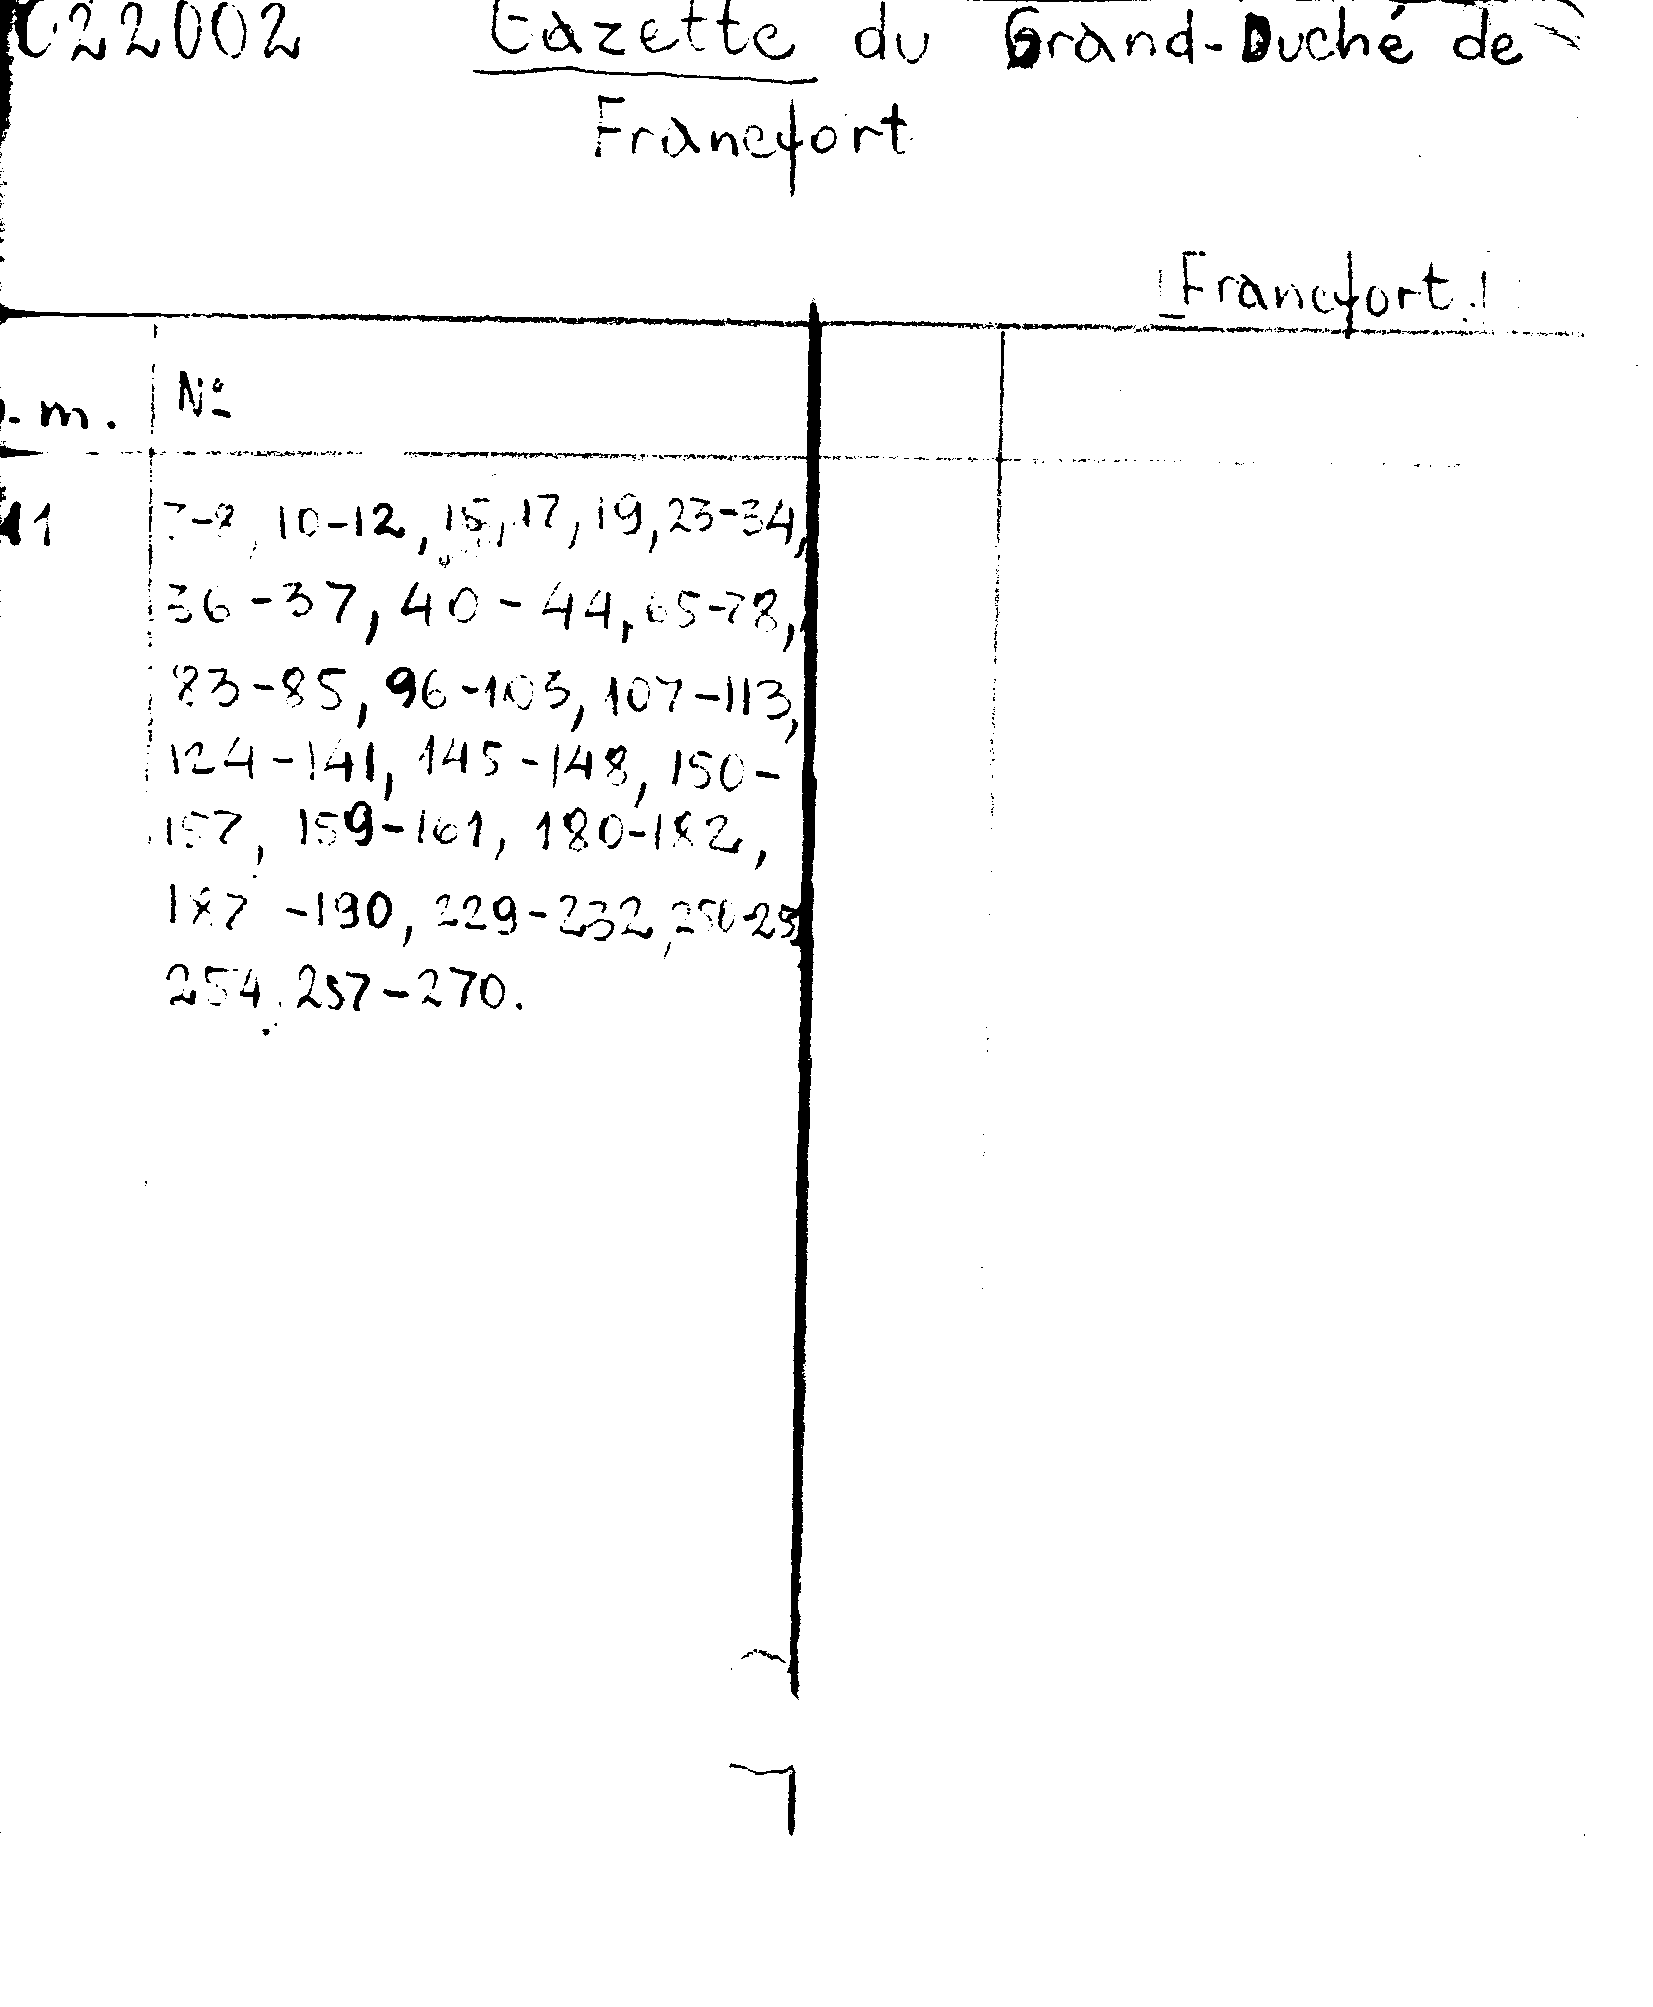 C22002 Gazette du Grand-Duché de
Francfort
Francfort
.m. Nº
11 7-8, 10-12, 15, 17, 19, 23-34,
36-37, 40-44, 65-78,
83-85, 96-103, 107-113,
124-141, 145-148, 150-
157, 159-161, 180-182,
187-190, 229-232,
254, 257-270.